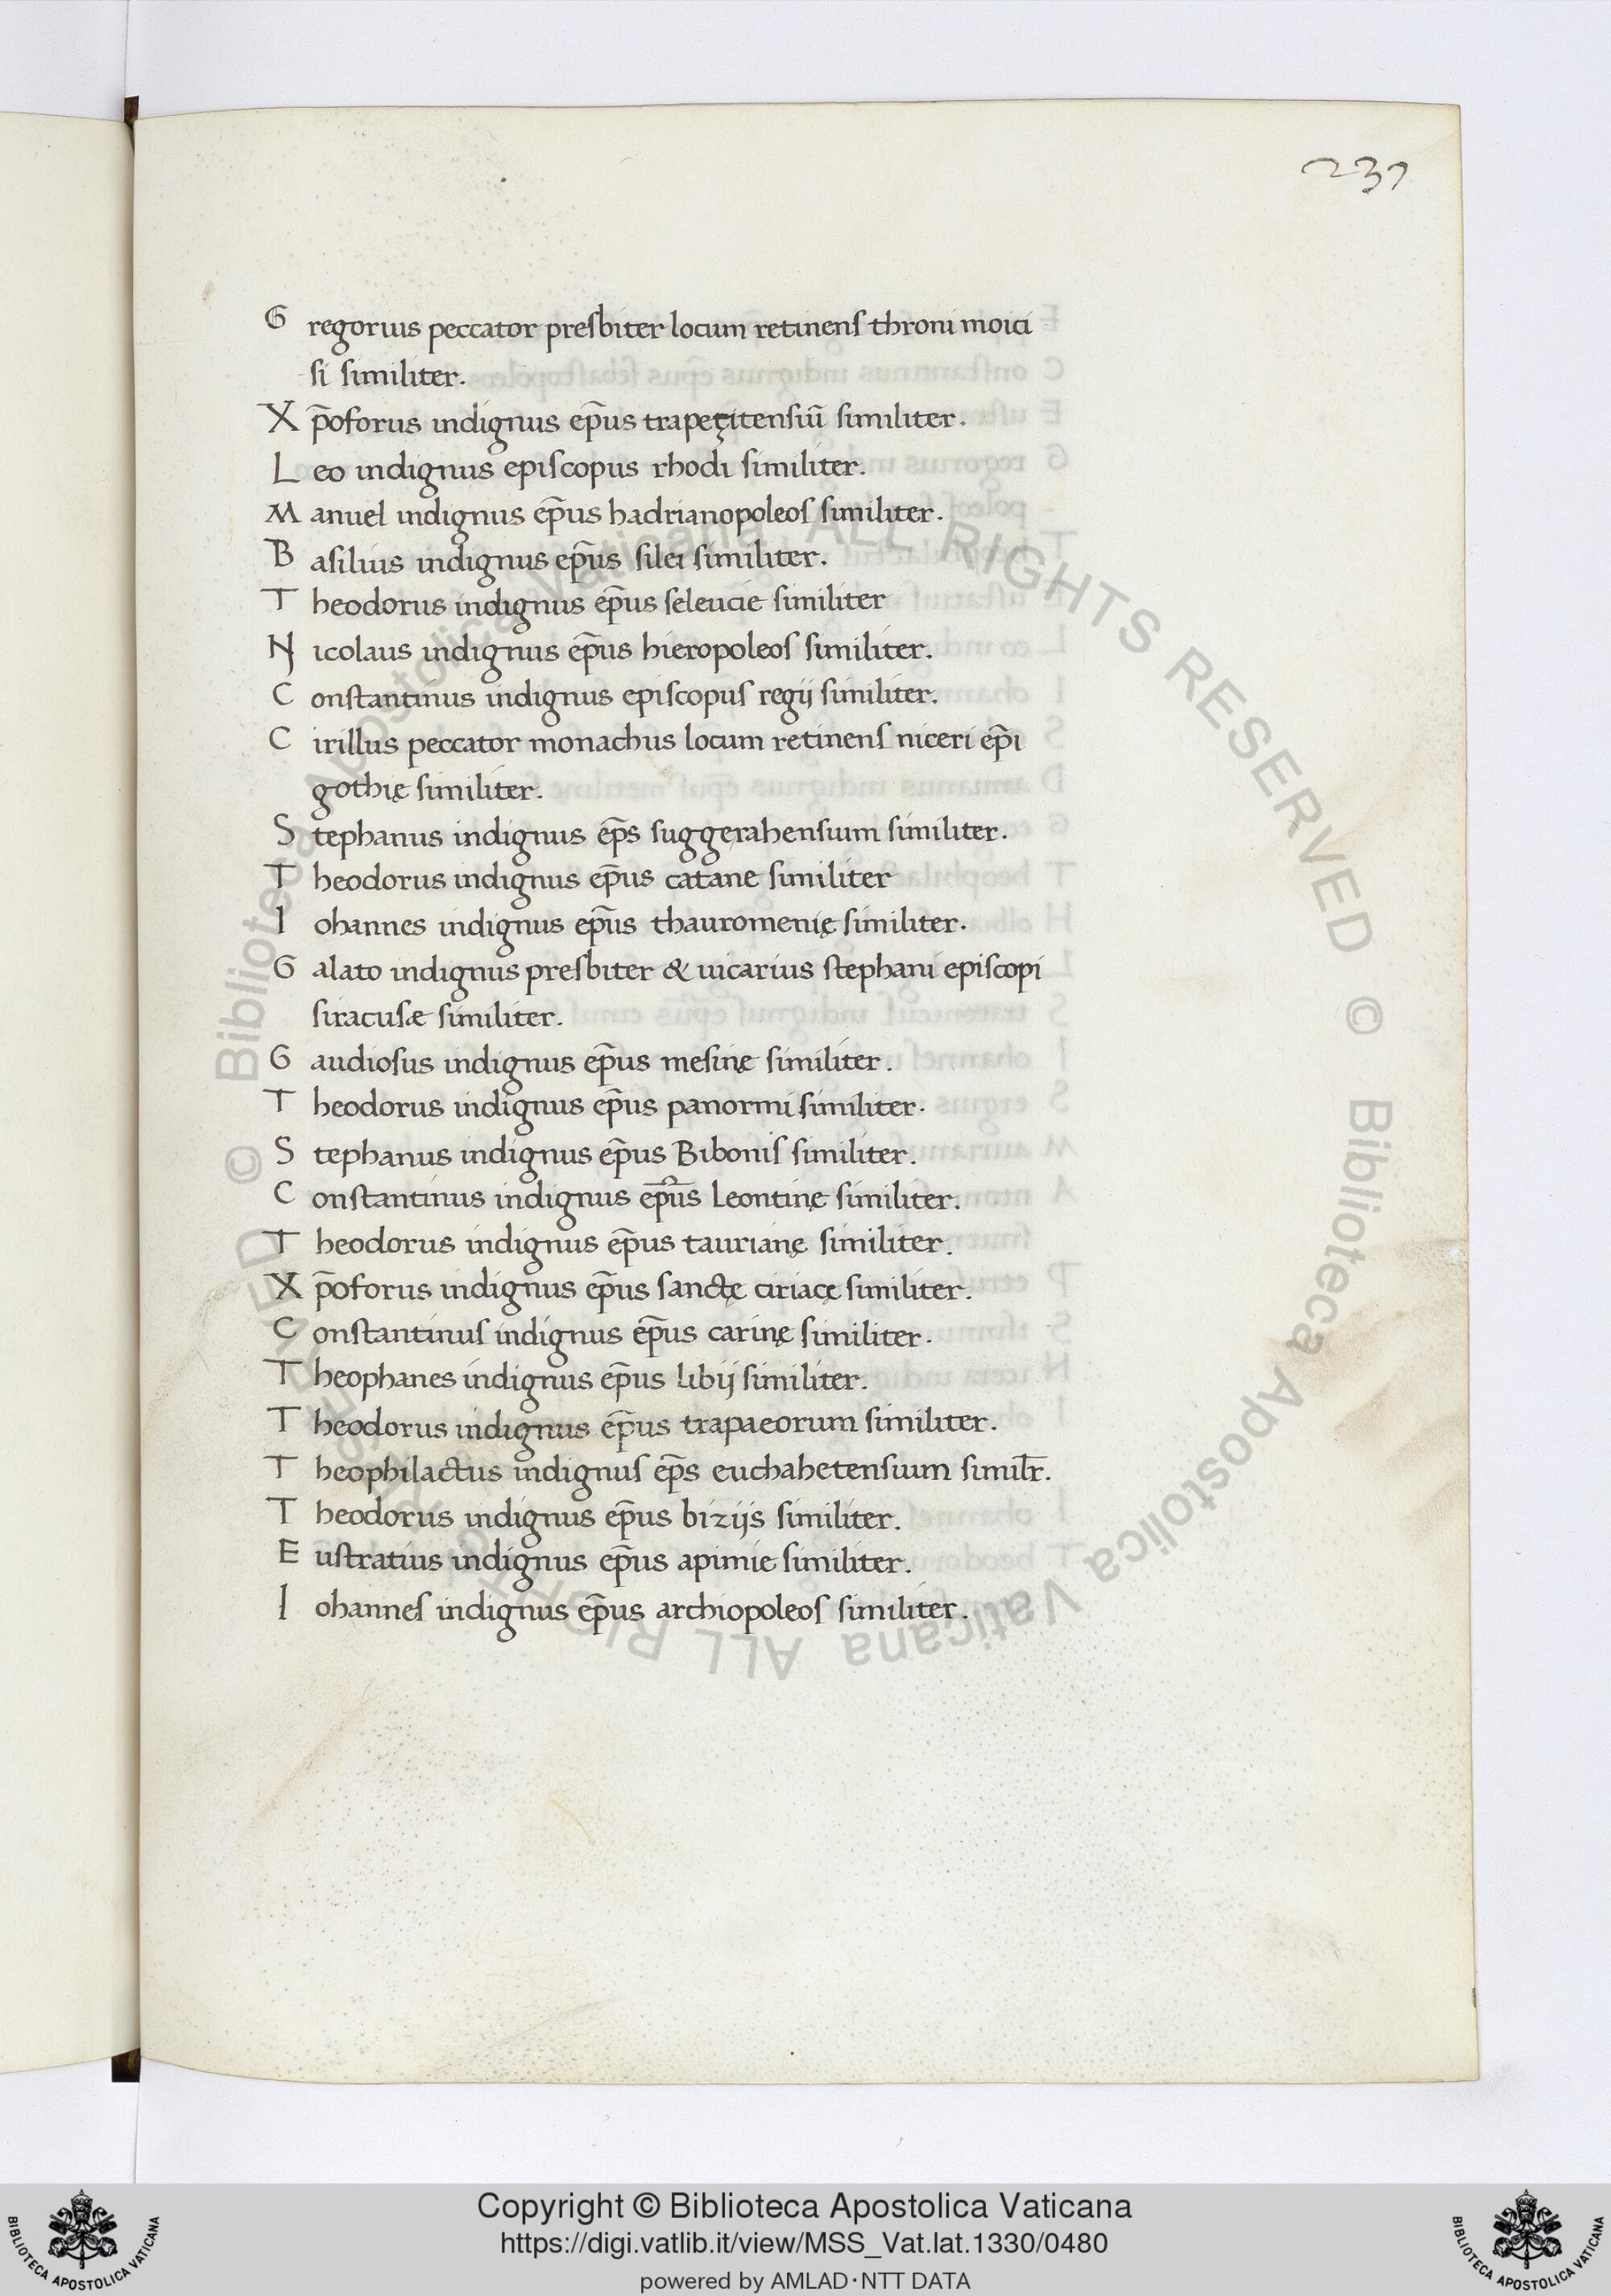 231
Gregorius peccator presbiter locum retinens throni moici
si similiter.
Xp̄oforus indignus ep̄us trapeçitensiū similiter.
Leo indignus episcopus rhodi similiter.
Manuel indignus ep̄us hadrianopoleos similiter.
Basilius indignus ep̄us silei similiter.
Theodorus indignus ep̄us seleucie similiter
Nicolaus indignus ep̄us hieropoleos similiter.
Constantinus indignus episcopus regij similiter.
Cirillus peccator monachus locum retinens niceri ep̄i
gothię similiter.
Stephanus indignus ep̄s suggerahensium similiter.
Theodorus indignus ep̄us catane similiter
Iohannes indignus ep̄us thauromenię similiter.
Galato indignus presbiter & uicarius stephani episcopi
siracusæ similiter.
Gaudiosus indignus ep̄us mesinę similiter.
Theodorus indignus ep̄us panormi similiter.
Stephanus indignus ep̄us Bibonis similiter.
Constantinus indignus ep̄us Leontinę similiter.
Theodorus indignus ep̄us taurianę similiter.
Xp̄oforus indignus ep̄us sanctę ciriacę similiter.
Constantinus indignus ep̄us carinę similiter.
Theophanes indignus ep̄us libij similiter.
Theodorus indignus ep̄us trapaeorum similiter.
Theophilactus indignus ep̄s euchahetensium simil̄r.
Theodorus indignus ep̄us bizijs similiter.
Eustratius indignus ep̄us apimie similiter.
Iohannes indignus ep̄us archiopoleos similiter.
© Biblioteca Apostolica Vaticana ALL RIGHTS RESERVED © Biblioteca Apostolica Vaticana ALL RIGHTS RESERVED
Copyright © Biblioteca Apostolica Vaticana
https://digi.vatlib.it/view/MSS_Vat.lat.1330/0480
powered by AMLAD·NTT DATA
BIBLIOTECA APOSTOLICA VATICANA
BIBLIOTECA APOSTOLICA VATICANA